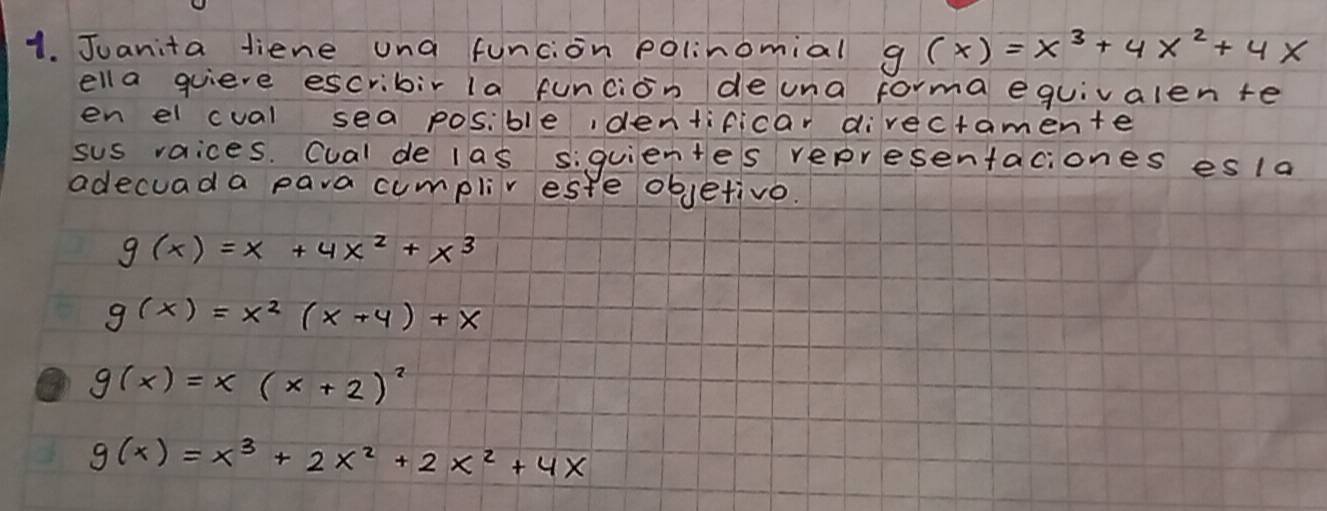 1. Juanita tiene una función polinomial g(x) = x³ + 4x² + 4x
ella quiere escribir la función de una forma equivalente
en el cual sea posible identificar directamente
sus raices. Cual de las siguientes representaciones es la
adecuada para cumplir este objetivo.
g(x) = x + 4x² + x³
g(x) = x² (x + 4) + x
g(x) = x (x + 2)²
g(x) = x³ + 2x² + 2x² + 4x